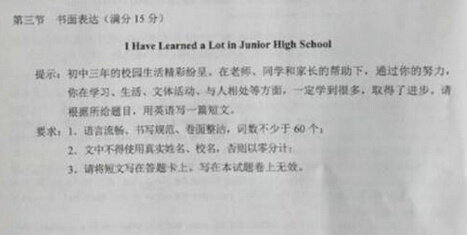 第三节 书面表达(满分 15 分)
I Have Learned a Lot in Junior High School
提示:初中三年的校园生活精彩纷呈。在老师、同学和家长的帮助下,通过你的努力,
你在学习、生活、文体活动、与人相处等方面,一定学到很多,取得了进步。请
根据所给题目,用英语写一篇短文。
要求:1.语言流畅、书写规范、卷面整洁,词数不少于 60 个;
2.文中不得使用真实姓名、校名,否则以零分计;
3.请将短文写在答题卡上。写在本试题卷上无效。